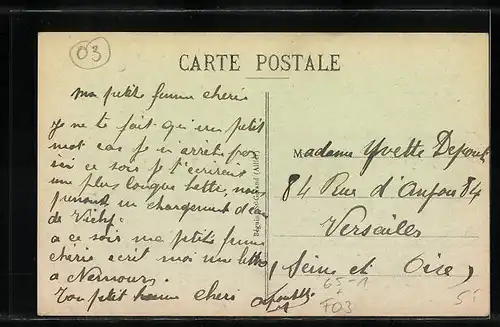 03
CARTE POSTALE
ma petite femme cherie
Je ne te fait qu'un petit
mot car je m arrête pas
ici ce soir je t'ecrirai
une plus longue lettre, nous
prenont un chargement d'eau
de Vichy.
a ce soir ma petite femme
cherie ecrit moi une lettre
a Nemours.
Ton petit homme cheri
Madame Yvette
84 Rue d'Anjou 84
Versailes
(Seine et Oise)
65-1
F03